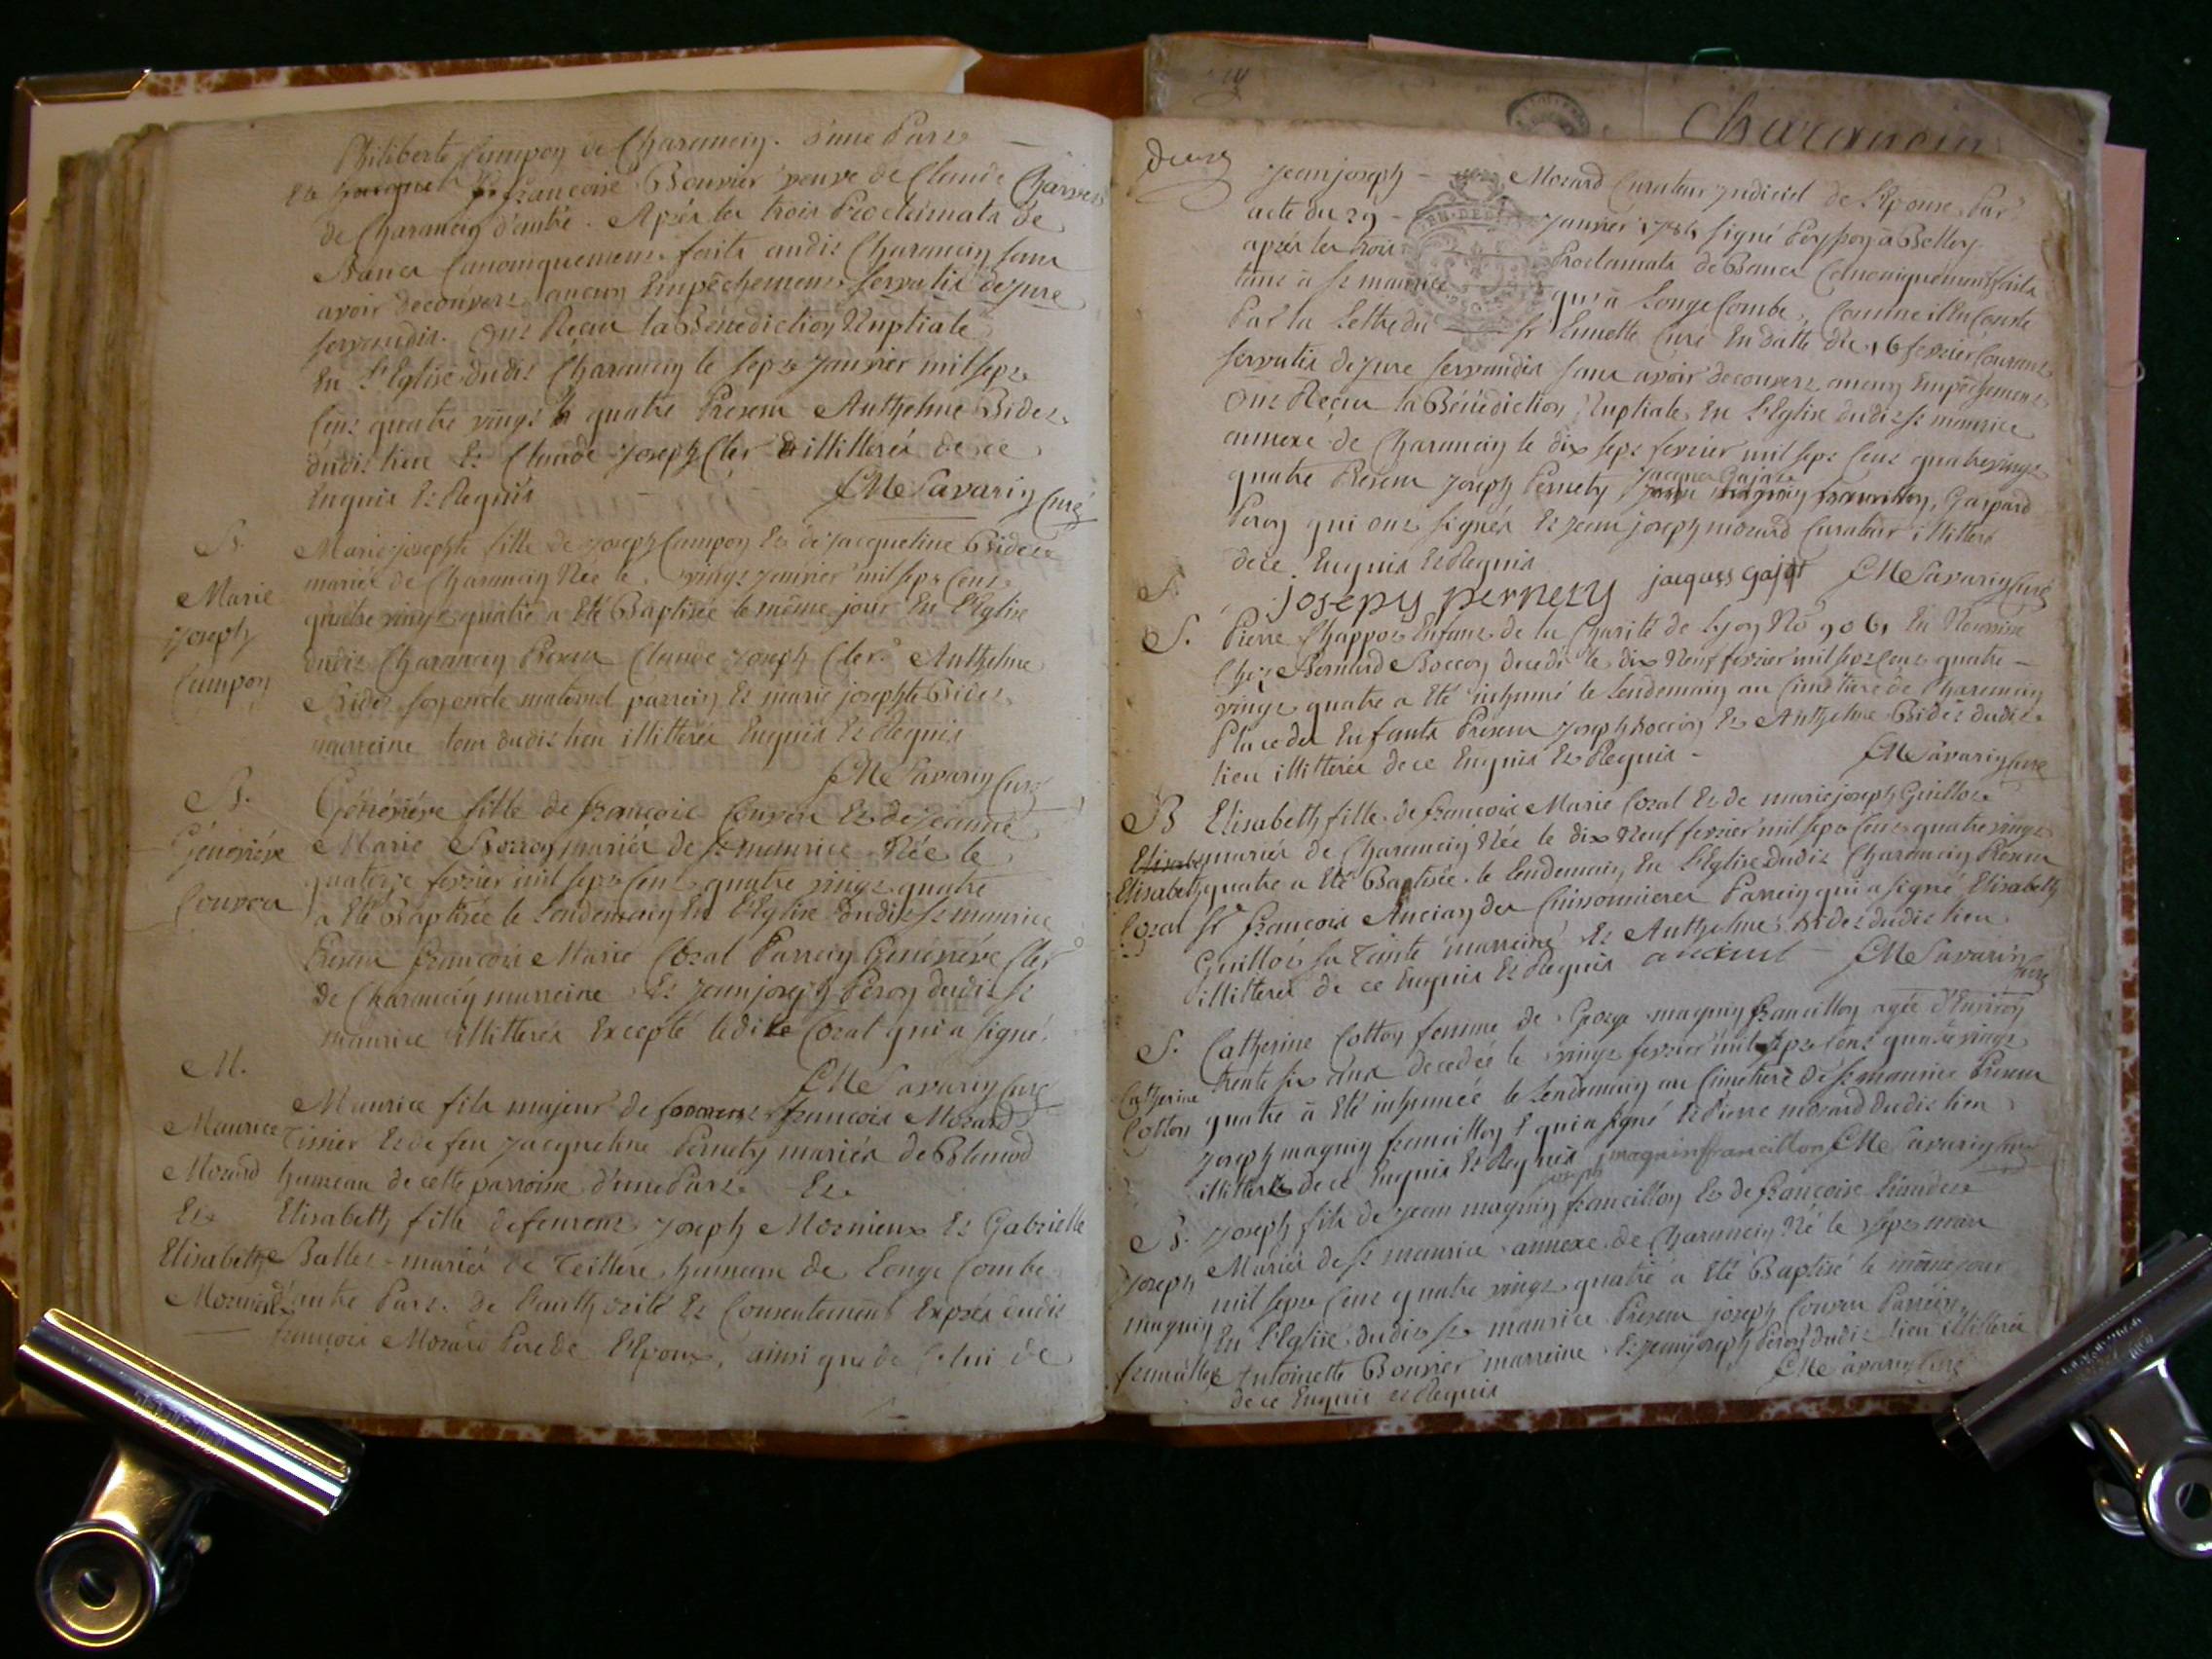 Philiberte Campon de Charancin d'une Part
Et françoise Bouvier veuve de Claude Charvet
de Charancin d'autre. Après les trois Proclamats de
Bancs Canoniquement faits audit Charancin sans
avoir decouvert aucun Empêchement servatis de jure
servandis. Ont Reçu la Bénédiction Nuptiale
En l'Eglise dudit Charancin le sept janvier mil sept
Cent quatre vingt quatre Presens Anthelme Bidet
dudit lieu Et Claude joseph Cler illitterés de ce
Enquis Et Requis CM Savarin Curé
B. Marie josephte fille de joseph Campon Et de jacqueline Bidet
Marie mariés de Charancin Née le vingt janvier mil sept Cent
joseph quatre vingt quatre a Eté Baptisée le même jour En l'Eglise
dudit Charancin Presens Claude joseph Cler Anthelme
Campon Bidet son oncle maternel parrein Et marie josephte Bidet
marreine tous dudit lieu illitterés Enquis Et Requis
CM Savarin Curé
B. Généviéve fille de françois Couvou Et de jeanne
Généviéve Marie mariés de St maurice Née le
quatorze fevrier mil sept Cent quatre vingt quatre
Couvou a Eté Baptisée le Lendemain En l'Eglise dudit St maurice
Presens françois Marie Cozal Parrein Généviéve Cler
de Charancin marreine Et jean joseph Peron dudit St
maurice illitterés Excepté ledit Cozal qui a signé.
CM Savarin Curé
M. Maurice fils majeur de françois Mozard
Maurice Tissier Et de feu jacqueline Pernety mariés de Blanod
Mozard hameau de cette parroisse d'une Part Et
Et Elisabeth fille de feurent joseph Mornieux Et Gabrielle
Elisabeth Ballet mariés de Teillere hameau de Longe Combe
d'autre Part. De l'authorité Et Consentement Exprès dudit
françois Mozard Pere de l'Epoux, ainsi que de Celui de
Charancin
deux jean joseph Mozard Curateur judiciel de l'Epouse Par
acte du 29 janvier 1784 signé Peysson à Belley
après les trois Proclamats de Bancs Canoniquement faits
tant à St maurice qu'à Longe Combe, Comme il En Conste
Par la Lettre du Sr Lunette Curé En datte du 16 fevrier Courant
servatis de jure servandis sans avoir decouvert aucun Empêchement
Ont Reçu la Bénédiction Nuptiale En l'Eglise dudit St maurice
annexe de Charancin le dix sept fevrier mil sept Cent quatre vingt
quatre Presens joseph Pernety jacques Gajot, Gaspard
Peron qui ont signés Et jean joseph mozard Curateur illitteré
de ce Enquis Et Requis
josepy pernety jacques gajot CM Savarin Curé
S. Pierre Chappot Enfant de la Charité de Lyon No 906 En Nourrice
Chez Bernard Boccon decedé le dix Neuf fevrier mil sept Cent quatre
vingt quatre a Eté inhumé le Lendemain au Cimetiere de Charancin
Place des Enfants Presens joseph Boccon Et Anthelme Bidet dudit
lieu illitterés de ce Enquis Et Requis
CM Savarin Curé
B Elisabeth fille de françois Marie Cozal Et de marie joseph Guillot
mariés de Charancin Née le dix Neuf fevrier mil sept Cent quatre vingt
Elisabeth quatre a Eté Baptisée le Lendemain En l'Eglise dudit Charancin Presens
Cozal Sr françois Ancian des Cuissonnieres Parrein qui a signé Elisabeth
Guillot sa Tante marreine Et Anthelme Bidet dudit lieu
illitterés de ce Enquis Et Requis CM Savarin Curé
S. Catherine Cotton femme de George magnin francillon agée d'Environ
Catherine trente six ans decedée le vingt fevrier mil sept Cent quatre vingt
Cotton quatre à Eté inhumée le Lendemain au Cimetiere de St maurice Presens
joseph magnin francillon qui a signé Et Pierre mozard dudit lieu
illitteré de ce Enquis Et Requis joseph magnin francillon CM Savarin Curé
B. joseph fils de jean magnin francillon Et de françoise
joseph Mariés de St maurice annexe de Charancin Né le sept mars
magnin mil sept Cent quatre vingt quatre a Eté Baptisé le même jour
En l'Eglise dudit St maurice Presens joseph Couvou Parrein,
Antoinette Bouvier marreine Et jean joseph Peron dudit lieu illitterés
de ce Enquis et Requis CM Savarin Curé